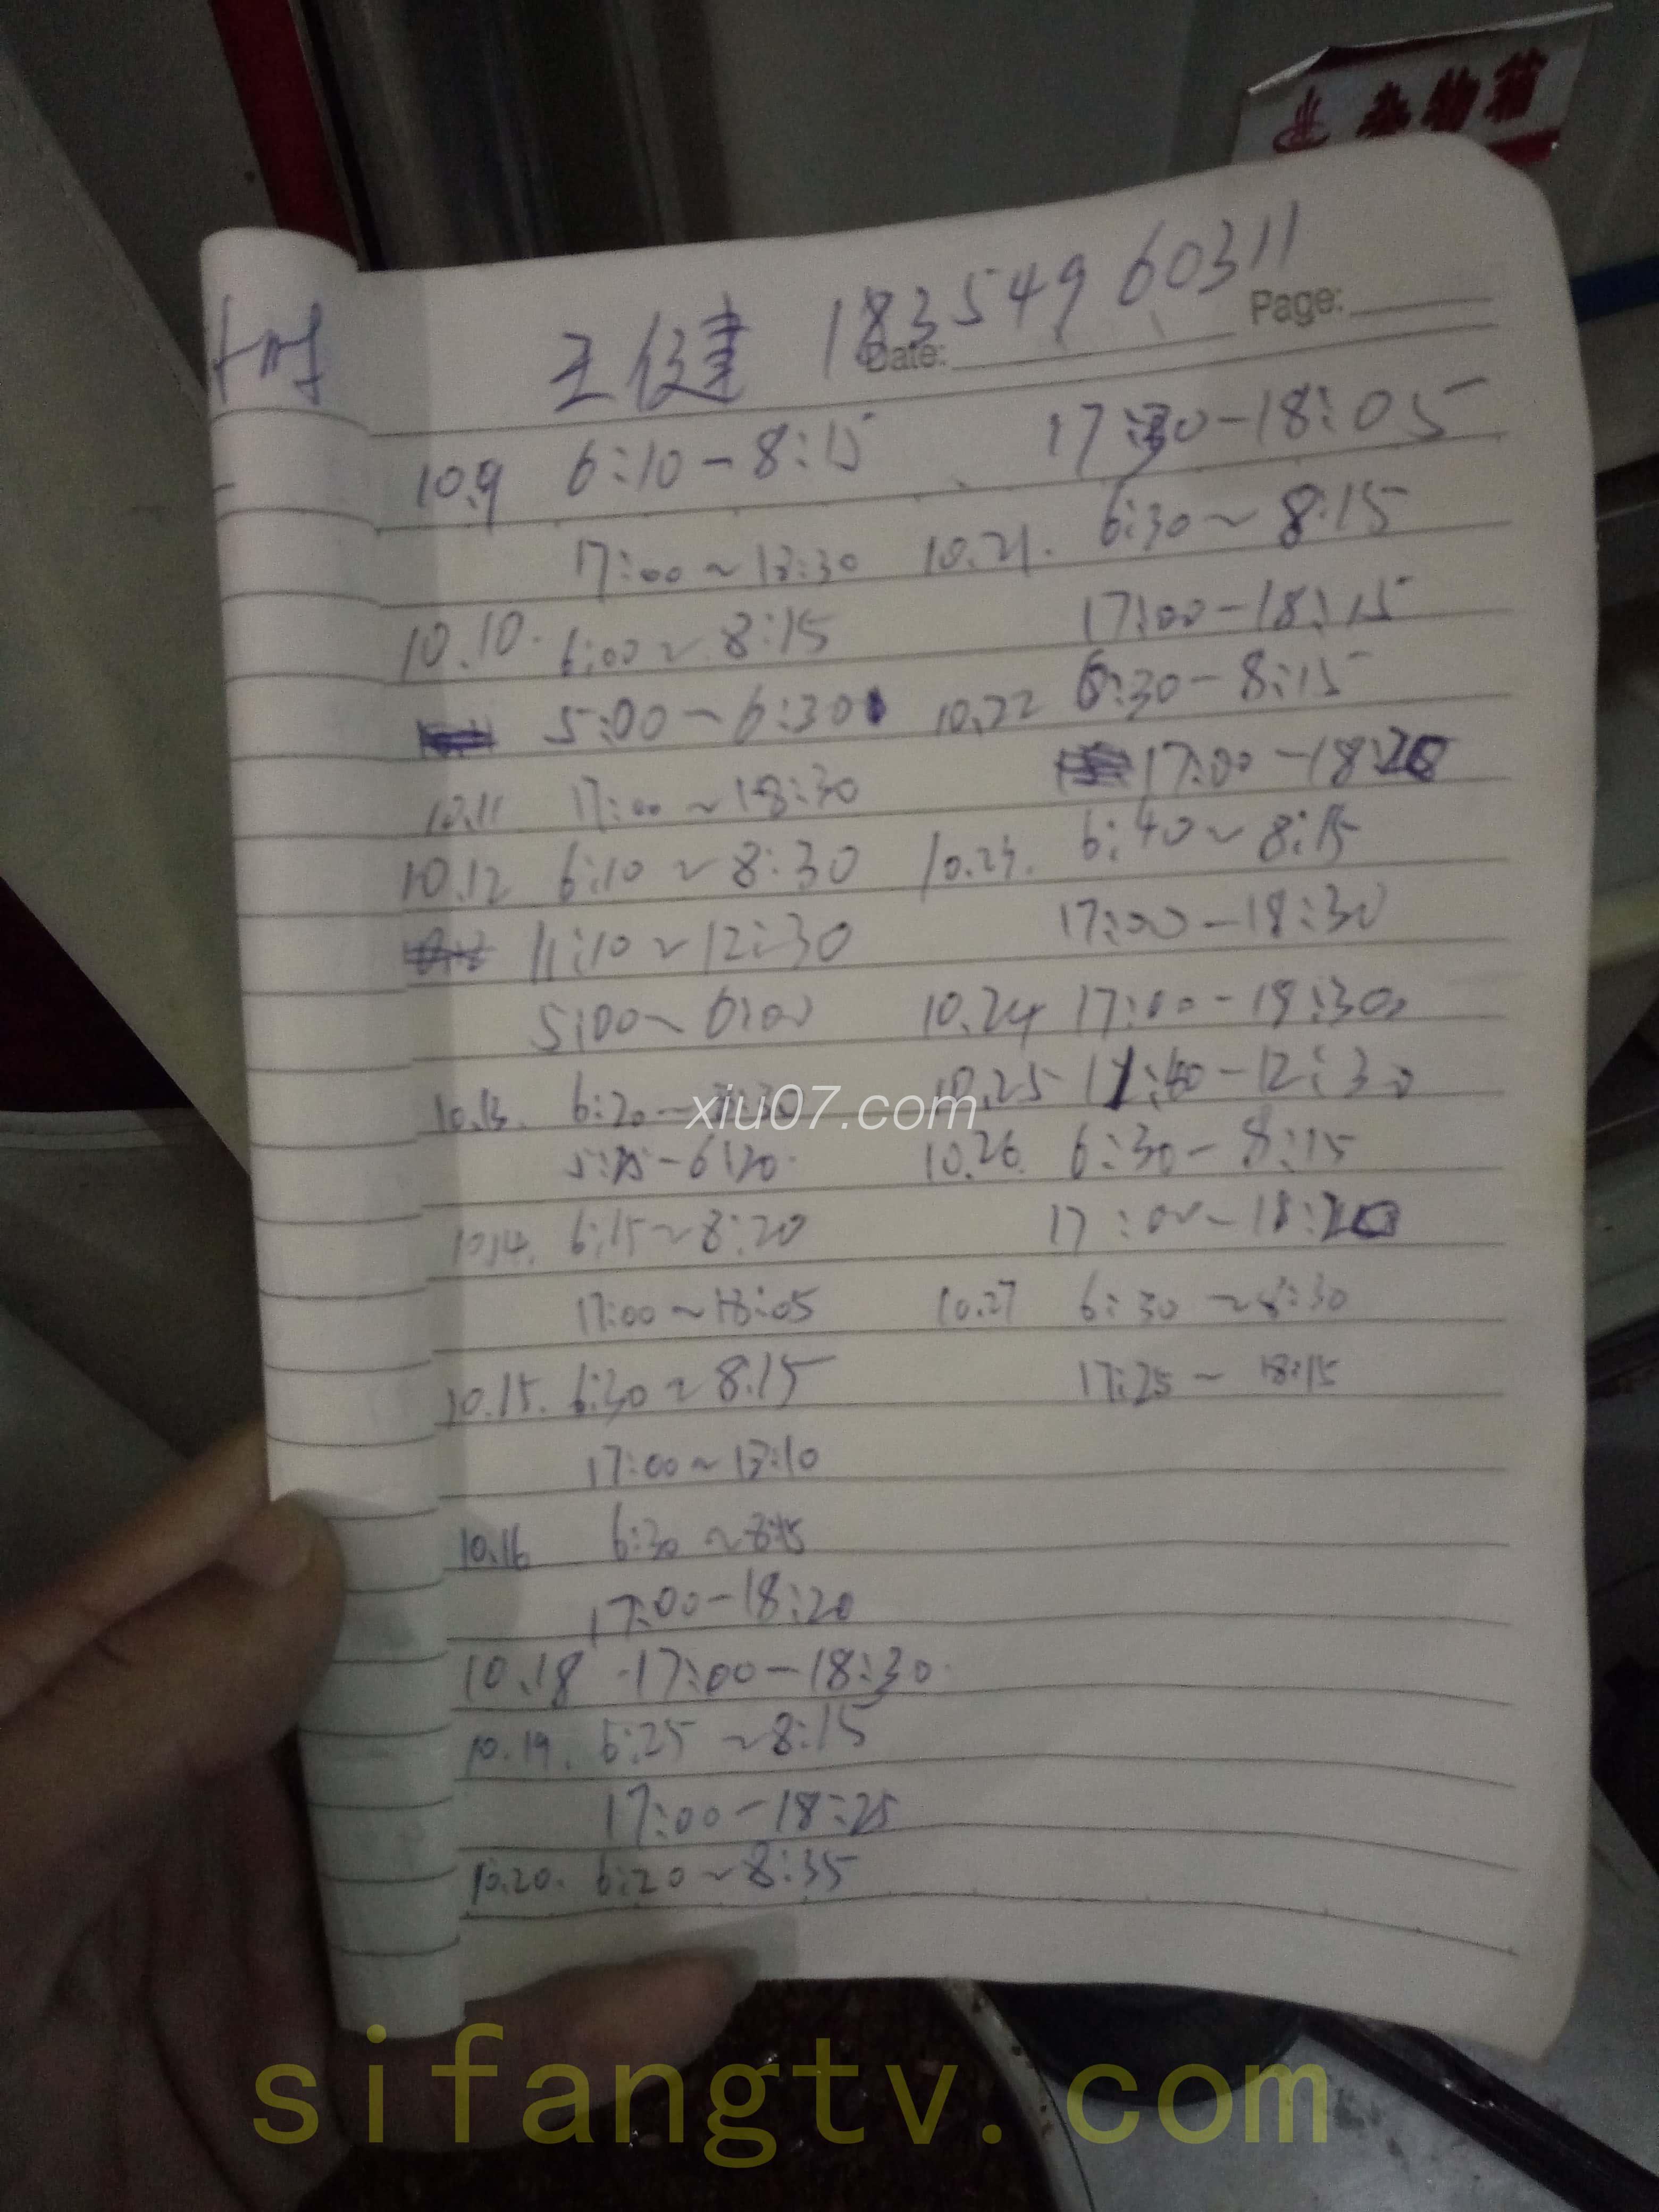 杂物箱
王健 18354960311
Date: Page:
10.9 6:10-8:15
17:00~18:30
10.10. 6:00~8:15
5:00-6:30
10.11 17:00~18:30
10.12 6:10~8:30
11:10~12:30
5:00~6:00
10.13. 6:20-8:30
10.14. 6:15~8:20
17:00~18:05
10.15. 6:30~8.15
17:00~18:10
10.16 6:30~8:15
17:00-18:20
10.18 17:00-18:30
10.19. 6:25~8:15
17:00-18:25
10.20. 6:20~8:35
17:30-18:05
10.21. 6:30~8:15
17:00-18:15
10.22 6:30-8:15
17:00-18:20
10.23. 6:40~8:15
17:00-18:30
10.24 17:00-18:30
10.25 11:40-12:30
10.26. 6:30-8:15
17:00-18:20
10.27 6:30~8:30
17:25~18:15
xiu07.com
sifangtv.com